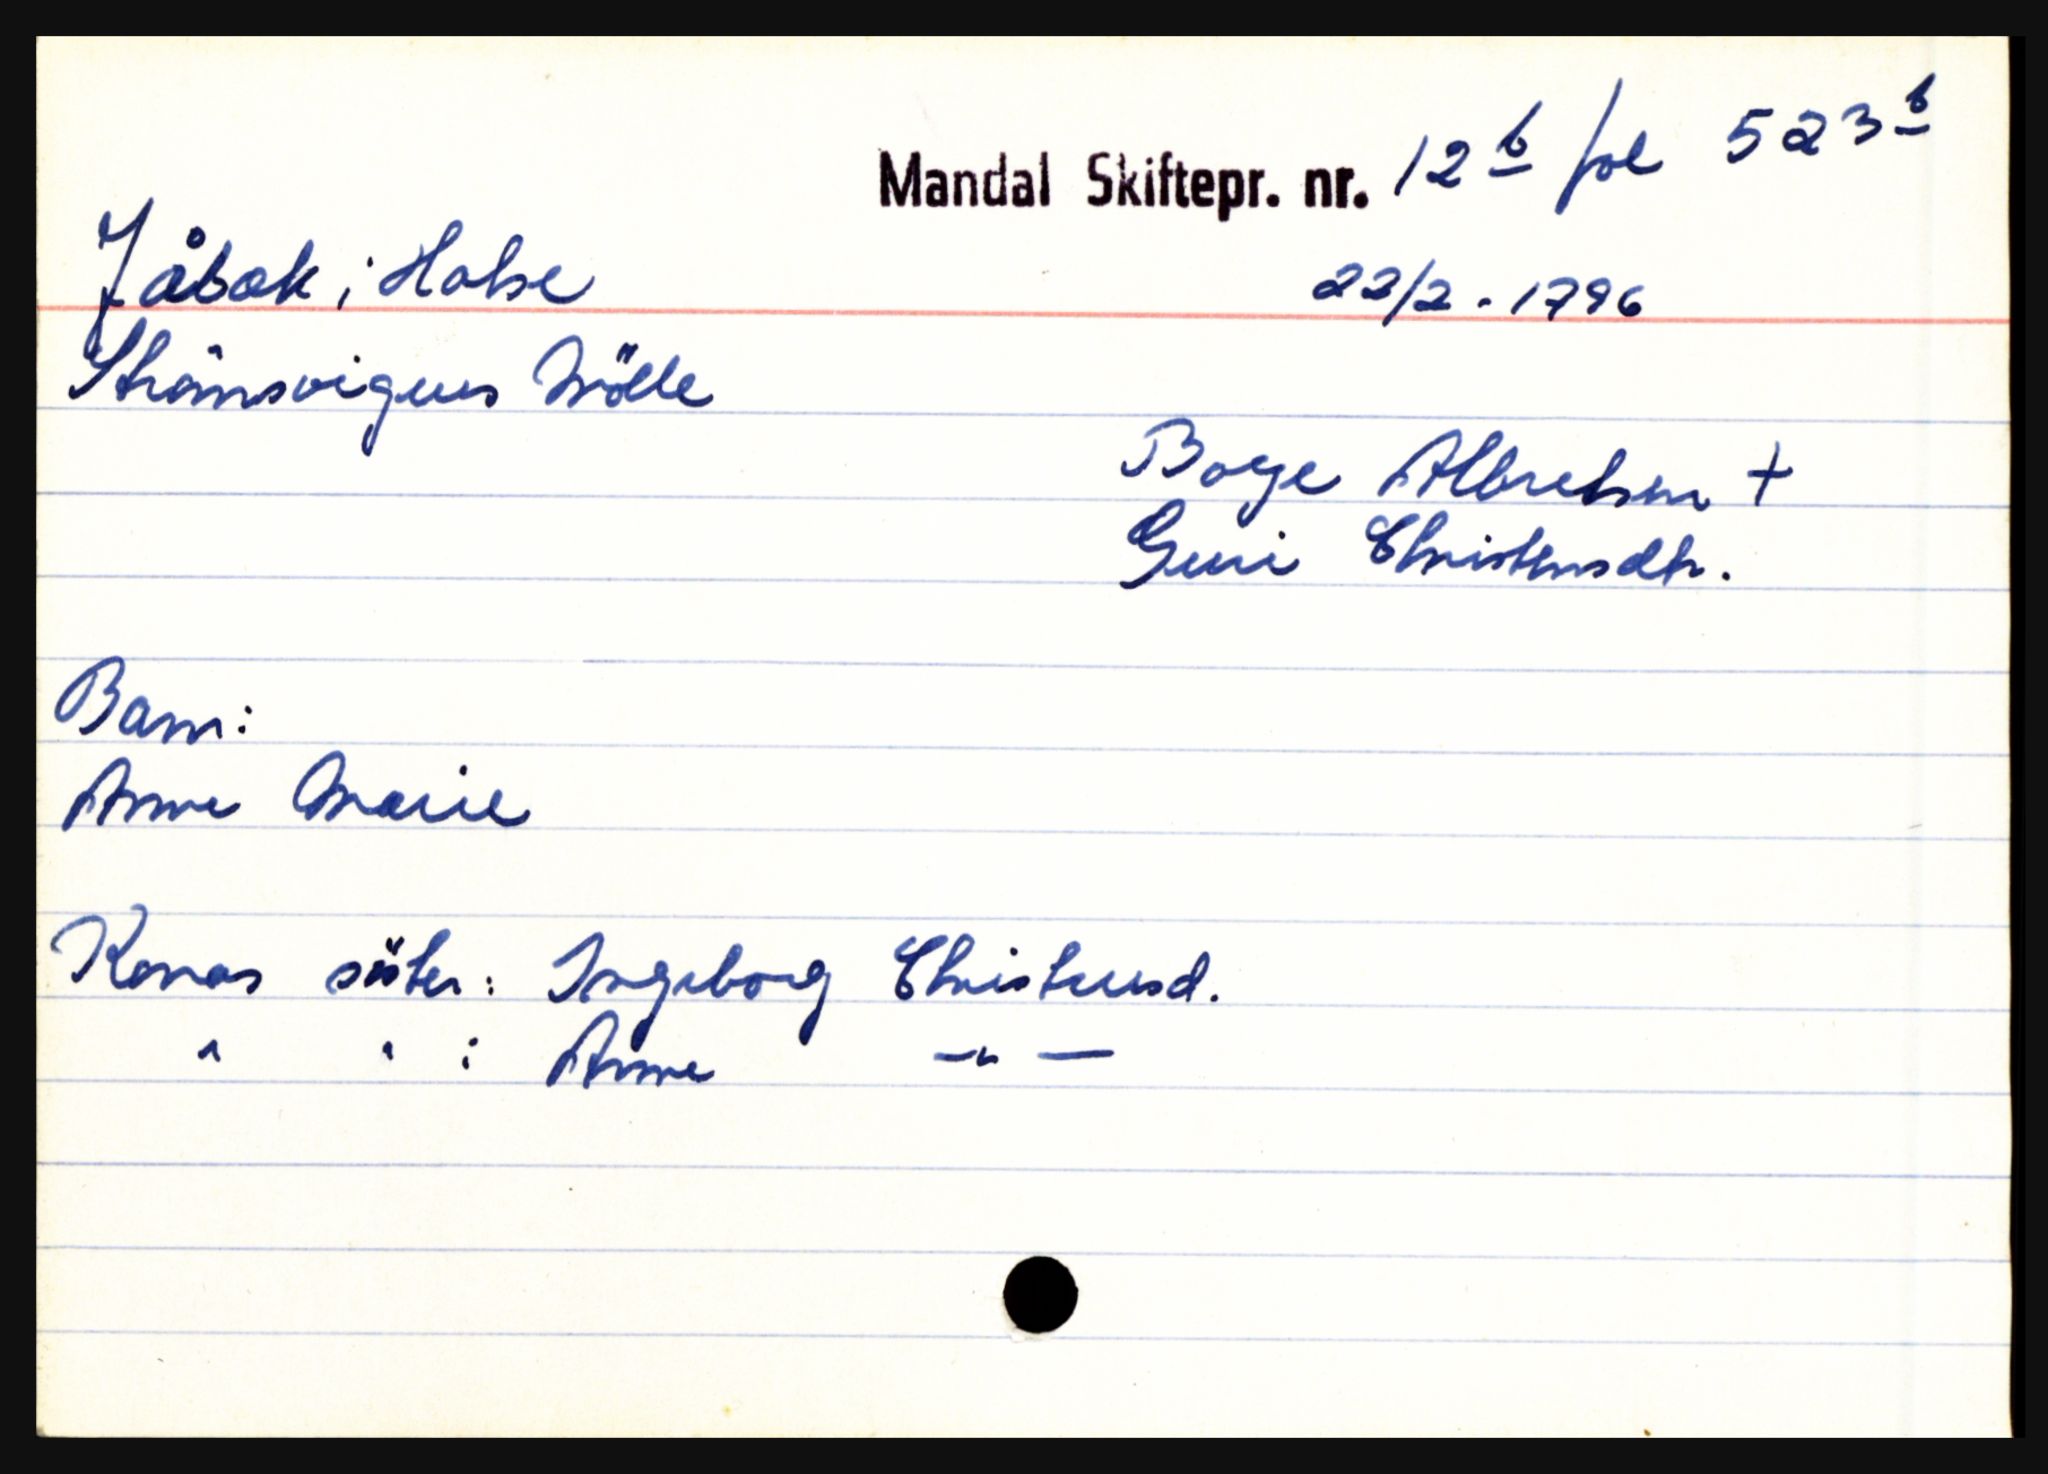 Mandal Skiftepr. nr. 12 b fol 523 b
Jåbæk i Halse
22/2 - 1796
Strömsvigens Mölle
Boye Albretsen +
Guri Christensdtr.
Barn:
Anne Marie
Konas söster: Ingeborg Christensd.
" " : Anne — " —